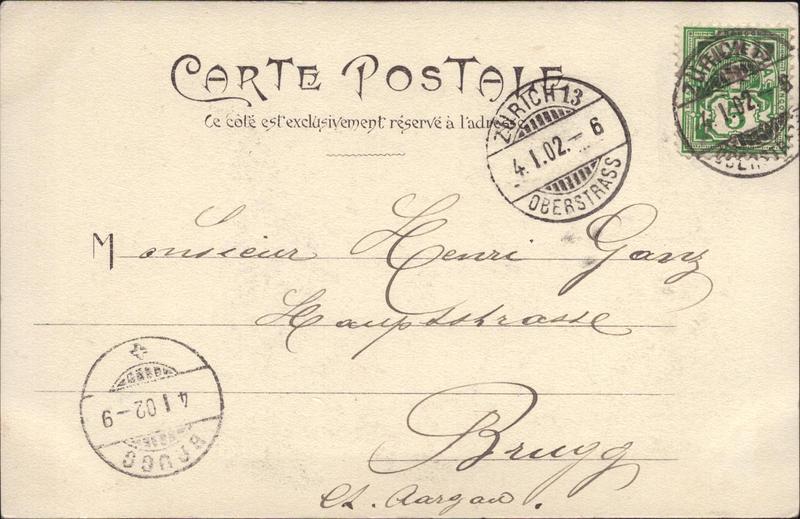 CARTE POSTALE
Ce côté est exclusivement réservé à l'adresse
ZÜRICH 13
4.I.02.-6
OBERSTRASS
4.I.02.
5
Monsieur Henri Ganz
Hauptstrasse
Brugg
Ct. Aargau.
BRUGG
4.I.02-9